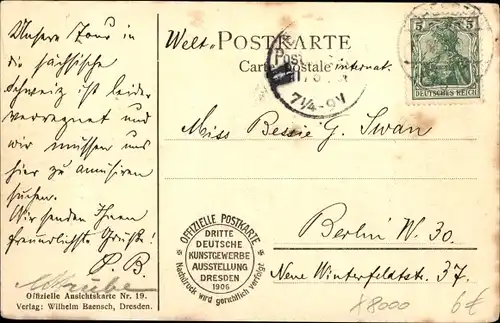 Unsere Tour in
die sächsische
Schweiz ist leider
verregnet und
wir müssen uns
hier zu amüsiren
suchen.
Wir senden Ihnen
freundlichste Grüße!
P. B.
Offizielle Ansichtskarte Nr. 19.
Verlag: Wilhelm Baensch, Dresden.
Welt POSTKARTE
Carte postale internat.
7¼-9V
5 5
DEUTSCHES REICH
Miss Bessie G. Swan
OFFIZIELLE POSTKARTE
DRITTE
DEUTSCHE
KUNSTGEWERBE
AUSSTELLUNG
DRESDEN
1906
Nachdruck wird gerichtlich verfolgt
Berlin W. 30.
Neue Winterfeldtstr. 37.
X8000 6€